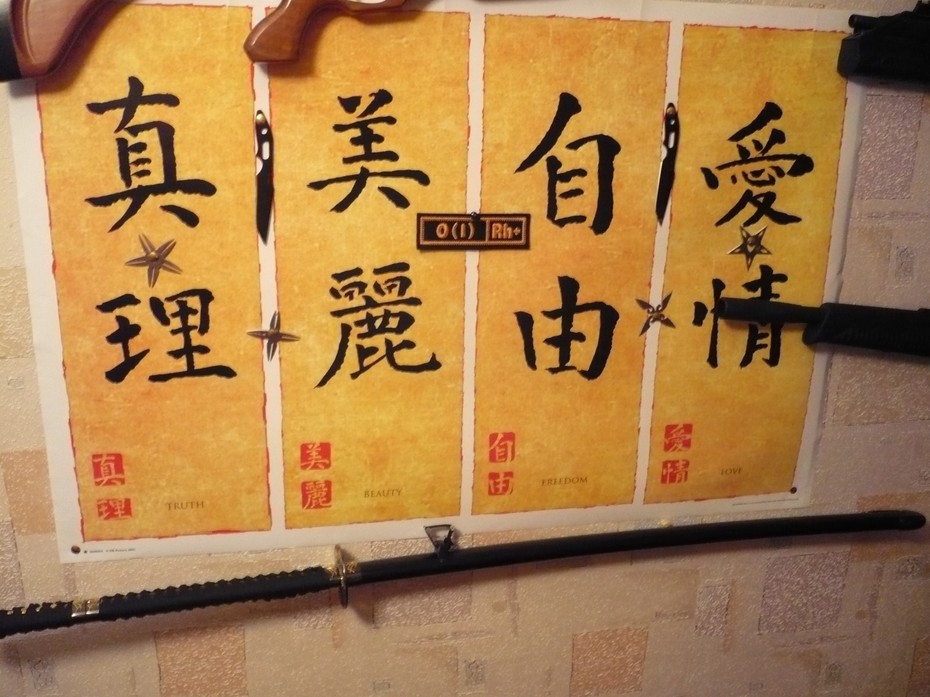 真理
美麗
自由
愛情
O(I) Rh+
真理
TRUTH
美麗
BEAUTY
自由
FREEDOM
愛情
LOVE